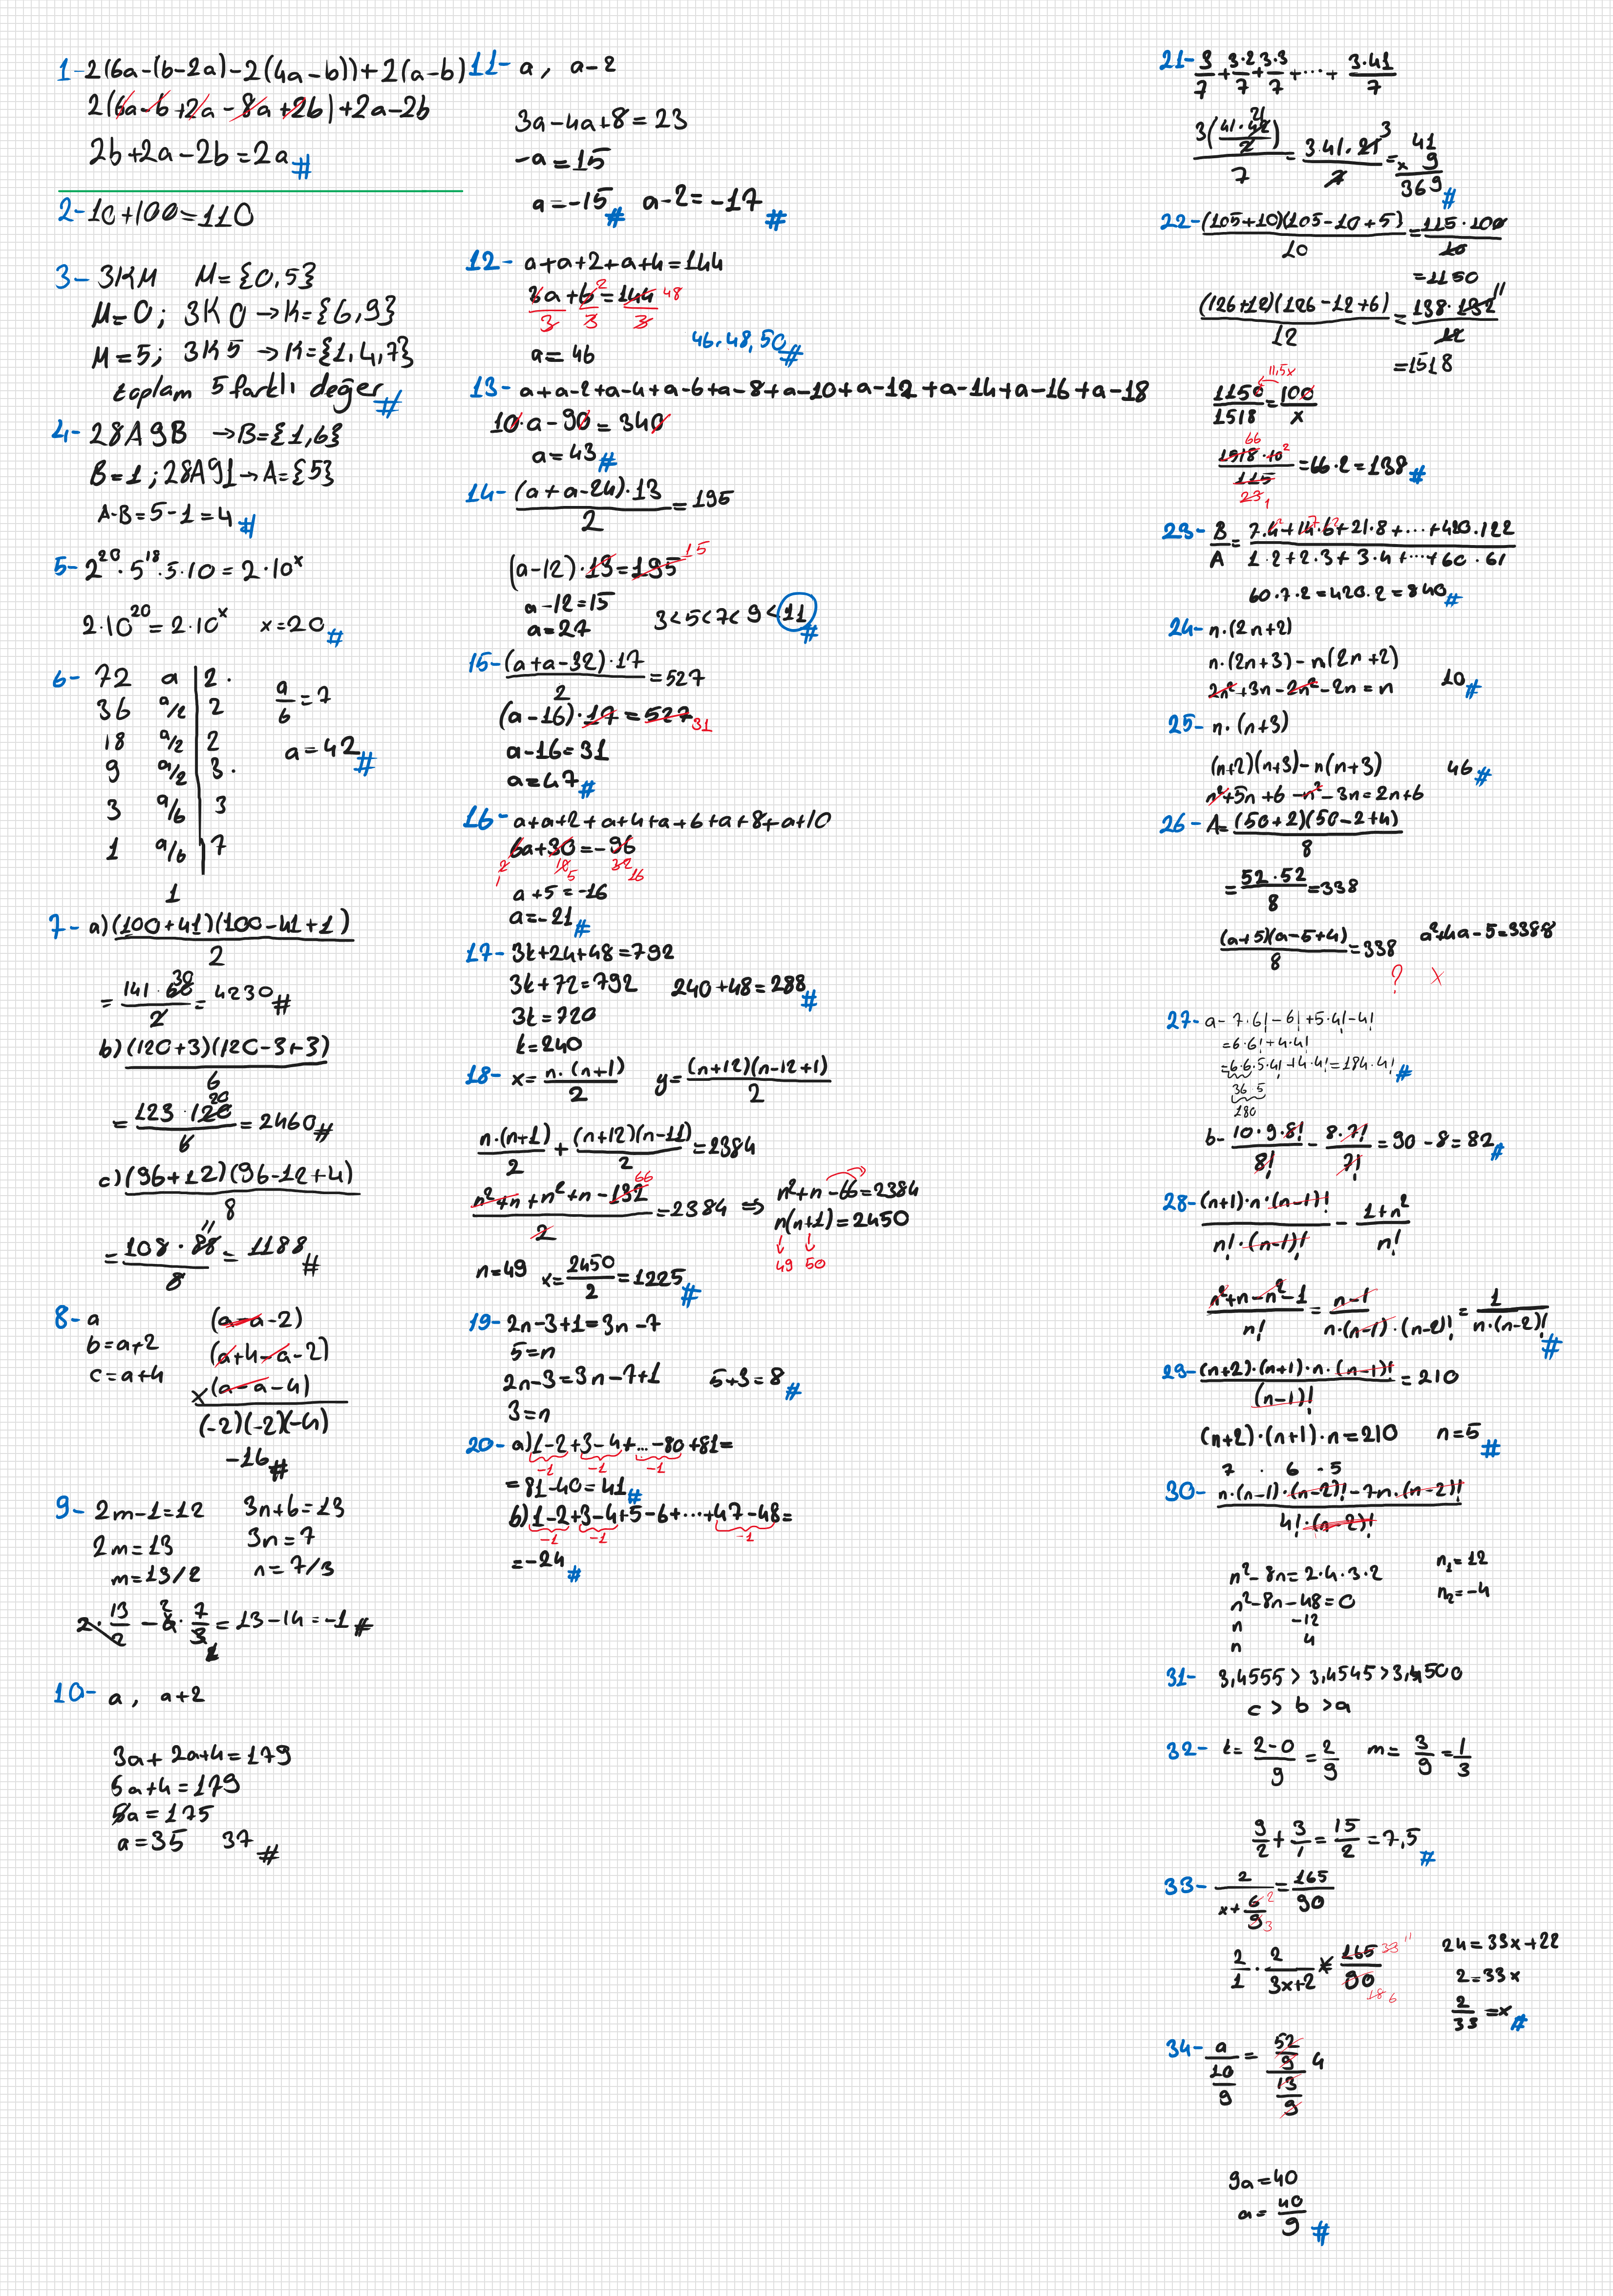 1- 2(6a-(b-2a)-2(4a-b))+2(a-b)
2(6a-b+2a-8a+2b)+2a-2b
2b+2a-2b=2a #
2- 10+100=110
3- 3KM M={0,5}
M=0; 3K0 →K={6,9}
M=5; 3K5 →K={1,4,7}
toplam 5 farklı değer #
4- 28A9B →B={1,6}
B=1; 28A91→A={5}
A-B=5-1=4 #
5- 2^20·5^18·5·10=2·10^x
2·10^20=2·10^x x=20 #
6- 72 a | 2 · a/6=7
36 a/2 | 2
18 a/2 | 2 a=42 #
9 a/2 | 3 ·
3 a/6 | 3
1 a/6 | 7
1
7- a) (100+41)(100-41+1)/2
= 141·60/2 = 4230 #
30
b) (120+3)(120-3+3)/6
= 123·120/6 = 2460 #
20
c) (96+12)(96-12+4)/8
= 108·88/8 = 1188 #
11
8- a (a-a-2)
b=a+2 (a+4-a-2)
c=a+4 x(a-a-4)
(-2)(-2)(-4)
-16 #
9- 2m-1=12 3n+6=13
2m=13 3n=7
m=13/2 n=7/3
2·13/2-6·7/3=13-14=-1 #
2
1
10- a, a+2
3a+2a+4=179
5a+4=179
5a=175
a=35 37 #
11- a, a-2
3a-4a+8=23
-a=15
a=-15 # a-2=-17 #
12- a+a+2+a+4=144
3a+6=144 48
2
3 3 3
a=46 46,48,50 #
13- a+a-2+a-4+a-6+a-8+a-10+a-12+a-14+a-16+a-18
10·a-90=340
a=43 #
14- (a+a-24)·13/2=195
(a-12)·13=195 15
a-12=15
a=27 3<5<7<9<11 #
15- (a+a-32)·17/2=527
(a-16)·17=527 31
a-16=31
a=47 #
16- a+a+2+a+4+a+6+a+8+a+10
6a+30=-96
2 10 32
1 5 16
a+5=-16
a=-21 #
17- 3k+24+48=792
3k+72=792 240+48=288 #
3k=720
k=240
18- x=n·(n+1)/2 y=(n+12)(n-12+1)/2
n·(n+1)/2+(n+12)(n-11)/2=2384
(n²+n+n²+n-132)/2=2384 ⇒ n²+n-66=2384
66
n(n+1)=2450
49 50
n=49 x=2450/2=1225 #
19- 2n-3+1=3n-7
5=n
2n-3=3n-7+1 5+3=8 #
3=n
20- a) 1-2+3-4+...-80+81=
-1 -1 -1
=81-40=41 #
b) 1-2+3-4+5-6+···+47-48=
-1 -1 -1
=-24 #
21- 3/7+3·2/7+3·3/7+···+3·41/7
3(41·42/2)/7=3·41·21/7=41 x 9
21
3
369 #
22- (105+10)(105-10+5)/10=115·100/10
=1150
(126+12)(126-12+6)/12=138·132/12
11
=1518
1150/1518=100/x
11,5x
66
1518·10²/115=66·2=138 #
23 1
23- B/A=7·4+14·6+21·8+···+420·122/1·2+2·3+3·4+···+60·61
60·7·2=420·2=840 #
24- n·(2n+2)
n·(2n+3)-n(2n+2) 10 #
2n²+3n-2n²-2n=n
25- n·(n+3)
(n+2)(n+3)-n(n+3) 46 #
n²+5n+6-n²-3n=2n+6
26- A=(50+2)(50-2+4)/8
=52·52/8=338
(a+5)(a-5+4)/8=338 a²+4a-5=3388
? x
27- a- 7·6!-6!+5·4!-4!
=6·6!+4·4!
=6·6·5·4!+4·4!=184·4! #
36 5
180
b- 10·9·8!/8!-8·7!/7!=90-8=82 #
28- (n+1)·n·(n-1)!/n!·(n-1)!-1+n²/n!
n²+n-n²-1/n!=n-1/n·(n-1)·(n-2)!=1/n·(n-2)! #
29- (n+2)·(n+1)·n·(n-1)!/(n-1)!=210
(n+2)·(n+1)·n=210 n=5 #
7 · 6 · 5
30- n·(n-1)·(n-2)!-7n·(n-2)!/4!·(n-2)!
n²-8n=2·4·3·2 n₁=12
n²-8n-48=0 n₂=-4
n -12
n 4
31- 3,4555>3,4545>3,4500
c>b>a
32- k=2-0/9=2/9 m=3/9=1/3
9/2+3/1=15/2=7,5 #
33- 2/x+6/9=165/90
2
3
2/1·2/3x+2=165/90 24=33x+22
33 11
18 6
2=33x
2/33=x #
34- a/(10/9)=(52/9)/(13/9) 4
9a=40
a=40/9 #